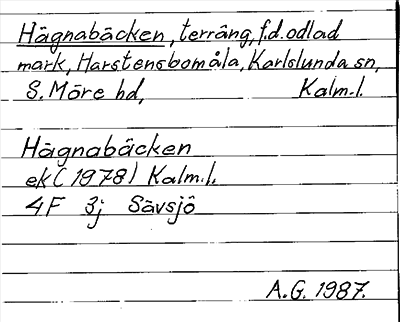 Hägnabäcken, terräng, f.d. odlad
mark, Harstensbomåla, Karlslunda sn,
S. Möre hd, Kalm.l.
Hägnabäcken
ek (1978) Kalm.l.
4F 3j Sävsjö
A.G. 1987.